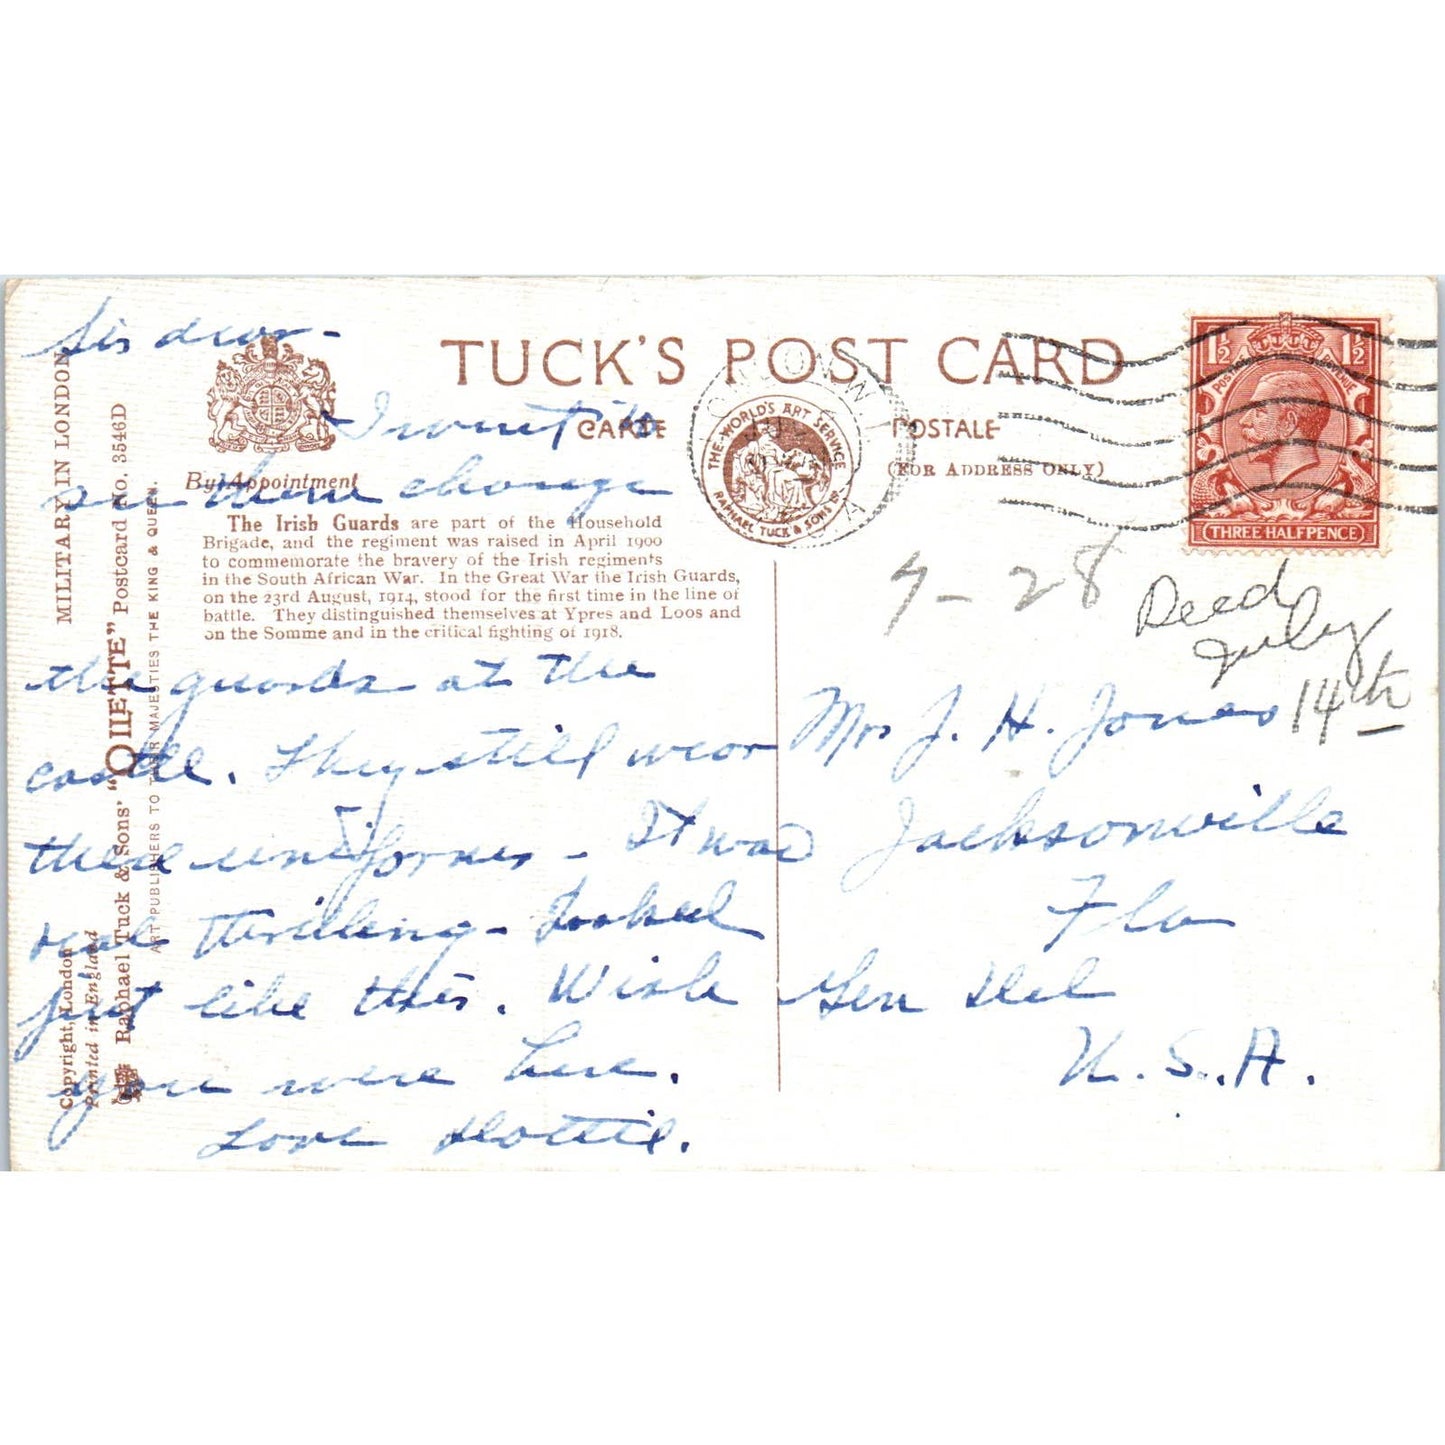 TUCK'S POST CARD
CARTE POSTALE
(FOR ADDRESS ONLY)
THE WORLD'S ART SERVICE
RAPHAEL TUCK & SONS LD
By Appointment
The Irish Guards are part of the Household
Brigade, and the regiment was raised in April 1900
to commemorate the bravery of the Irish regiments
in the South African War. In the Great War the Irish Guards,
on the 23rd August, 1914, stood for the first time in the line of
battle. They distinguished themselves at Ypres and Loos and
on the Somme and in the critical fighting of 1918.
MILITARY IN LONDON
Raphael Tuck & Sons' "OILETTE" Postcard No. 3546D
ART PUBLISHERS TO THEIR MAJESTIES THE KING & QUEEN.
Copyright, London
Printed in England
Sis dear -
I went to
see them change
the guards at the
castle. They still wear
these uniforms - It was
real thrilling - Looked
just like this. Wish
you were here.
Love Dottie.
1½ 1½
POSTAGE REVENUE
THREE HALFPENCE
7-28
Recd
July
14th
Mrs J. H. Jones
Jacksonville
Fla
Gen Del
U.S.A.